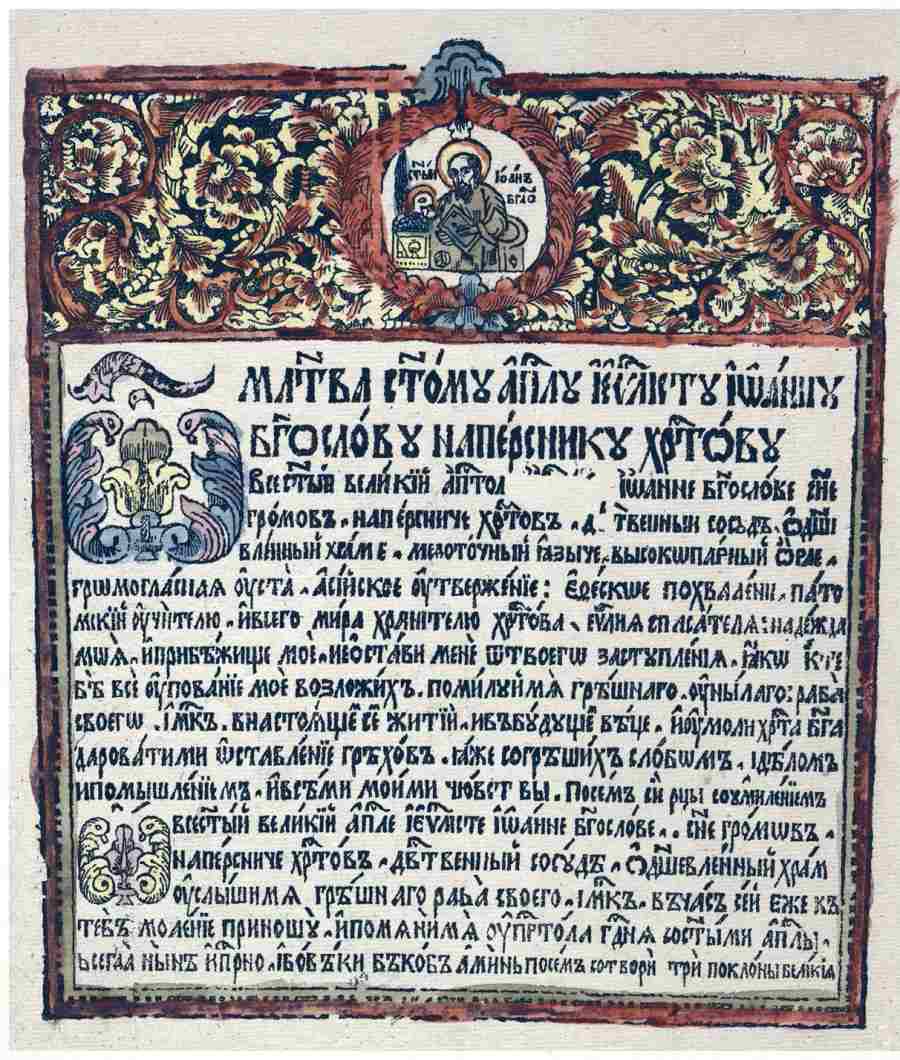 С҃ТЫЙ ІОАНЪ
БГ҃О
МЛ҃ТВА СТ҃О́МУ А҆ПЛ҃У И҆ Е҆ѴЛ҃ІСТУ І҆ѠА́ННУ
БГ҃ОСЛО́ВУ НАПЕ́РСНИКУ ХРТ҃О́ВУ
ВСЕСТ҃Ы́Й ВЕЛИ́КІЙ А҆ПТ҃ОЛ ІѠАННЕ БГ҃ОСЛО́ВЕ СН҃Е
ГРО́МОВЪ . НАПЕ́РСНИЧЕ ХРТ҃О́ВЪ . СОСУ́ДЪ . Ѡ҆ДШ҃Е
ВЛЕ́ННЫЙ ХРА́МЕ . МЕДОТО́ЧНЫЙ Ꙗ҆ЗЫ́ЧЕ . ВЫСОКѠПА́РНЫЙ Ѻ҆РЛЕ .
ГРѠМОГЛА́СНАЯ ОУ҆СТА̀ . А҆СІ́ЙСКОЕ ОУ҆ТВЕРЖЕ́НІЕ : Е҆ФЕ́СКѠЕ ПОХВАЛЕ́НИ . ПА́ТО
МСКІЙ ОУ҆ЧИ́ТЕЛЮ . И҆ВСЕГО̀ МИ́РА ХРАНИ́ТЕЛЮ ХРТ҃О́ВА . Е҆Ѵ҃ЛИЯ СПАСА́ТЕЛЯ : НАДЕ́ЖДА
МОѦ̀ . И҆ПРИБѢ́ЖИЩЕ МОЀ . НЕѠСТА́ВИ МЕНЀ Ѿ ТВОЕГѠ ЗАСТУПЛЕ́НІЯ . Ꙗ҆́КѠ К ТЕ
БѢ̀ ВСЀ ОУ҆ПОВА́НІЕ МОЀ ВОЗЛОЖИ́ХЪ . ПОМИ́ЛУЙМѦ ГРѢ́ШНАГО . ОУ҆НЫ́ЛАГО : РАБА̀
СВОЕГѠ . І҆МК҃Ъ . ВНАСТОѦ́ЩЕЕ СЀ ЖИТІЙ . ИВЪБУ́ДУЩЕЕ ВѢ́ЦЕ . И҆ОУ҆МОЛИ ХРТ҃А̀ БГ҃А
ДАРОВА́ТИМИ Ѡ҆СТАВЛЕ́НІЕ ГРѢХО́ВЪ . Ꙗ҆́ЖЕ СОГРѢШИ́ХЪ СЛО́ВОМЪ . І҆ДѢ́ЛОМЪ
ИПОМЫШЛЕ́НІЕМЪ . И҆ВСѢ́МИ МОИ́МИ ЧЮ́ВСТ ВЫ . ПОСЕ́МЪ СИ́Й РЦЫ̀ СОУМИЛЕ́НІЕМЪ
ВСЕСТ҃Ы́Й ВЕЛИ́КІЙ А҆́ПЛ҃Е І҆Е҆ѴЛ҃ІСТЕ І҆ѠА́ННЕ БГ҃ОСЛО́ВЕ .. СН҃Е ГРО́МѠВЪ .
НАПЕ́РСНИЧЕ ХРТ҃О́ВЪ . ДВ҃СТВЕННЫЙ СОСУ́ДЪ . Ѡ҆ДШ҃ЕВЛЕ́ННЫЙ ХРАМ
ОУ҆СЛЫ́ШИМЯ ГРѢ́ШНАГО РАБА̀ СВОЕГО . І҆МК҃Ъ . ВЪЧА́СЪ СЕ́Й ЕЖЕ КЪ
ТЕБѢ̀ МОЛЕ́НІЕ ПРИНОШУ̀ . И҆ПОМѦНИ́МѦ ОУ҆ ПРТ҃О́ЛА ГДН҃Я СОСТ҃Ы́МИ А҆ПЛ҃Ы .
ВСЕГДА НЫ́НѢ И҆ПРН҃О . І҆ВОВѢ́КИ ВѢКО́ВЪ А҆МИ́НЬ ПОСЕ́МЪ СОТВОРЍ ТРЍ ПОКЛО́НЫ ВЕЛИ́КІЯ